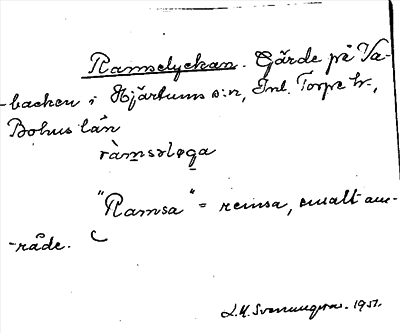 Ramselyckan. Gärde på Va-
-backen i Hjärtums s:n, Inl. Torpe hr.,
Bohus län
ràmsəløga
"Ramsa" = remsa, smalt om-
-råde.
S. M. Svenungsson. 1951.